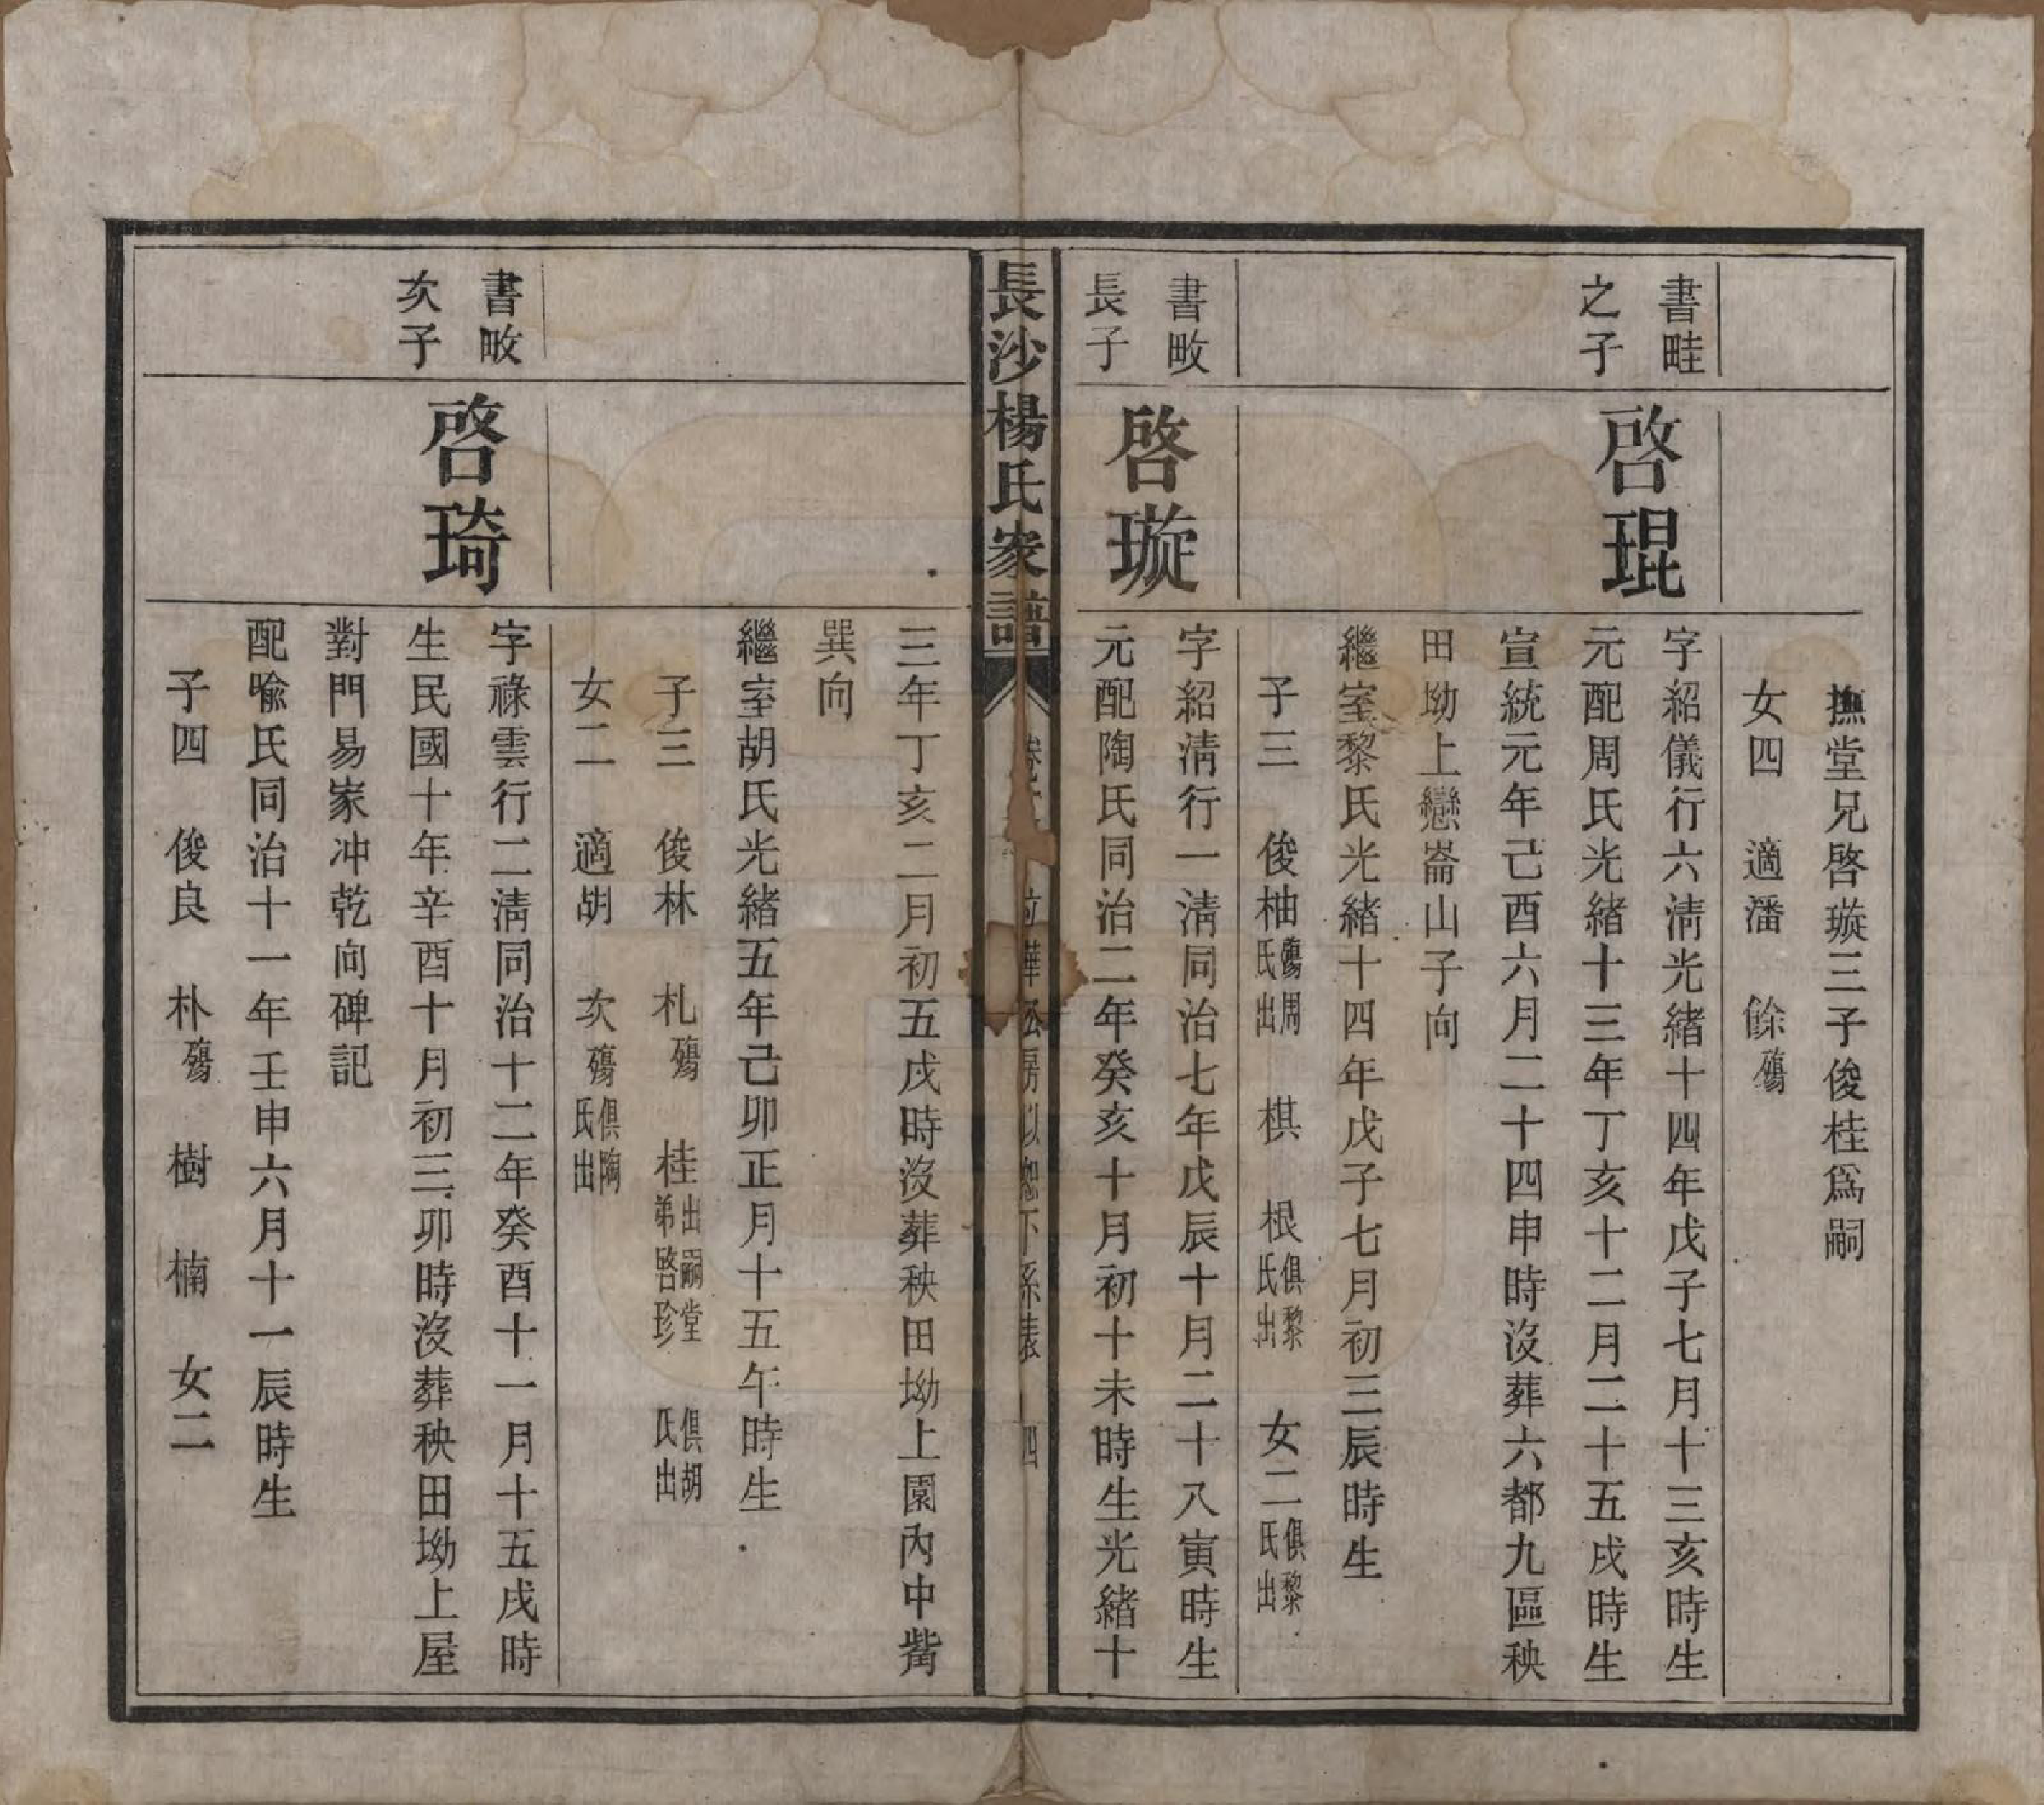 撫堂兄啓璇三子俊桂爲嗣
女四　適潘　餘殤
書畦
之子
啓琨
字紹儀行六淸光緒十四年戊子七月十三亥時生
元配周氏光緒十三年丁亥十二月二十五戌時生
宣統元年己酉六月二十四申時沒葬六都九區秧
田坳上戀崙山子向
繼室黎氏光緒十四年戊子七月初三辰時生
子三　俊柚殤周氏出　棋　根俱黎氏出　女二俱黎氏出
書畋
長子
啓璇
字紹淸行一淸同治七年戊辰十月二十八寅時生
元配陶氏同治二年癸亥十月初十未時生光緒十
長沙楊氏家譜
房以恕下系表　四
三年丁亥二月初五戌時沒葬秧田坳上園內中觜
巽向
繼室胡氏光緒五年己卯正月十五午時生
子三　俊林　札殤　桂出嗣堂弟啓珍　俱胡氏出
女二　適胡　次殤俱陶氏出
書畋
次子
啓琦
字祿雲行二淸同治十二年癸酉十一月十五戌時
生民國十年辛酉十月初三卯時沒葬秧田坳上屋
對門易家冲乾向碑記
配喩氏同治十一年壬申六月十一辰時生
子四　俊良　朴殤　樹　楠　女二